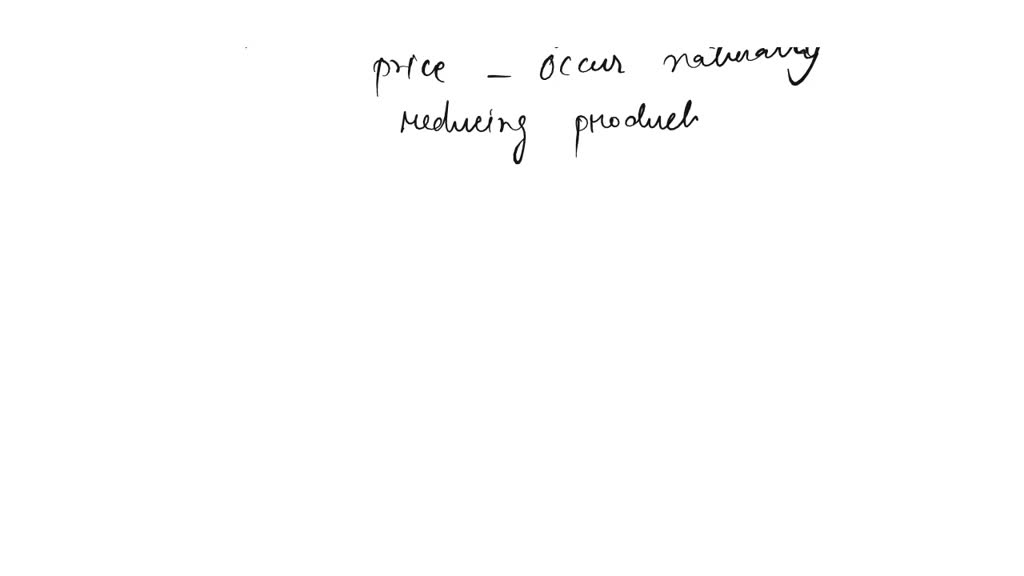 price - occur naturally
reducing product